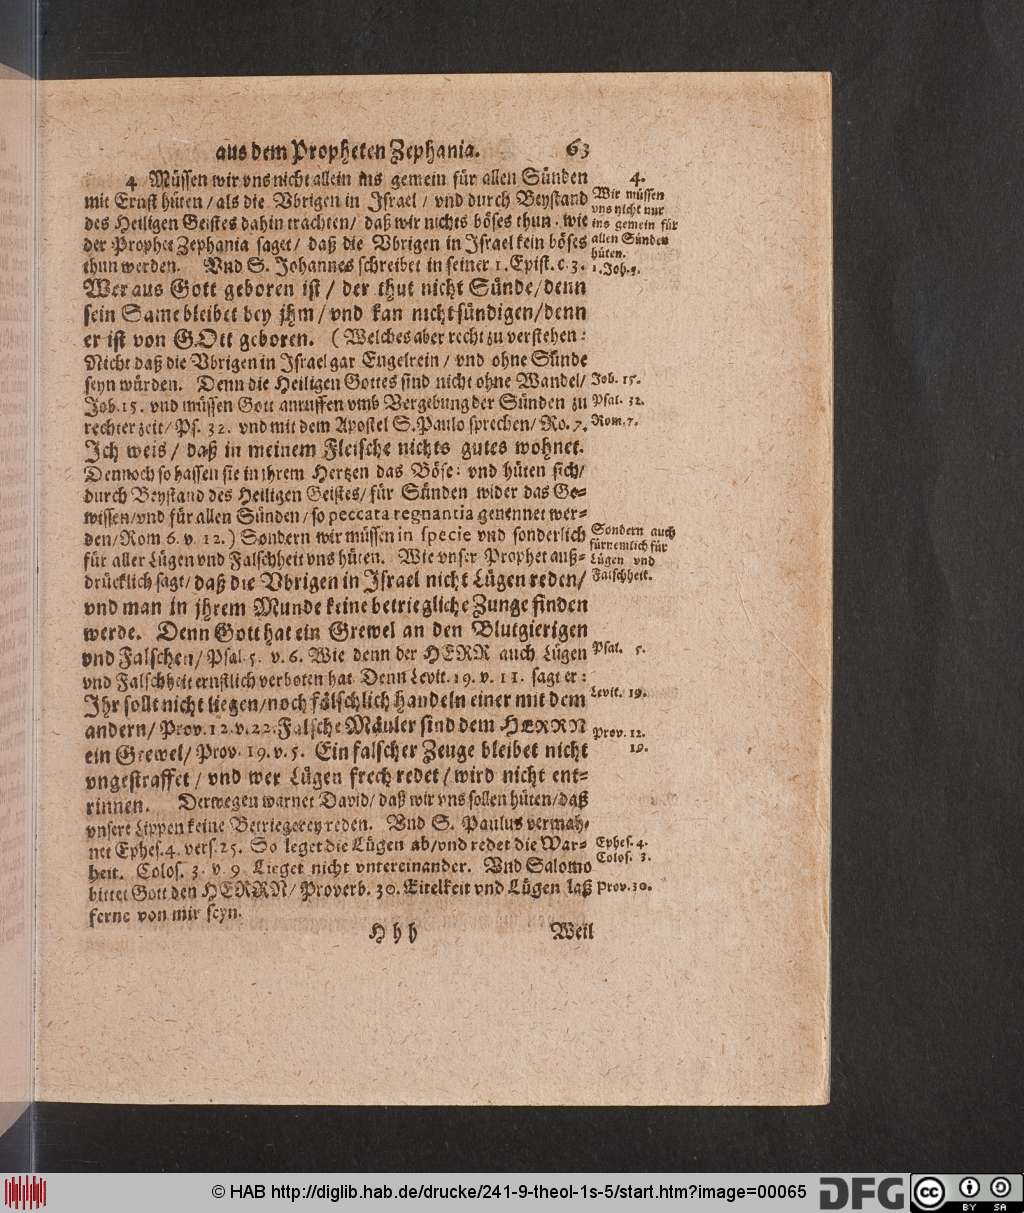 aus dem Propheten Zephania. 63
4 Müssen wir vns nicht allein ins gemein für allen Sünden
mit Ernst hüten / als die Vbrigen in Israel / vnd durch Beystand
des Heiligen Geistes dahin trachten / daß wir nichts böses thun. wie
der Prophet Zephania saget / daß die Vbrigen in Israel kein böses
thun werden. Vnd S. Johannes schreibet in seiner 1. Epist. c. 3.
Wer aus Gott geboren ist / der thut nicht Sünde / denn
sein Same bleibet bey jhm / vnd kan nicht sündigen / denn
er ist von GOtt geboren. ( Welches aber recht zu verstehen:
Nicht daß die Vbrigen in Israel gar Engelrein / vnd ohne Sünde
seyn würden. Denn die Heiligen Gottes sind nicht ohne Wandel /
Job. 15. vnd müssen Gott anruffen vmb Vergebung der Sünden zu
rechter zeit / Ps. 32. vnd mit dem Apostel S. Paulo sprechen / Ro. 7.
Ich weis / daß in meinem Fleische nichts gutes wohnet.
Dennoch so hassen sie in ihrem Hertzen das Böse: vnd hüten sich /
durch Beystand des Heiligen Geistes / für Sünden wider das Ge-
wissen / vnd für allen Sünden / so peccata regnantia genennet wer-
den / Rom 6. v. 12. ) Sondern wir müssen in specie vnd sonderlich
für aller Lügen vnd Falschheit vns hüten. Wie vnser Prophet auß-
drücklich sagt / daß die Vbrigen in Israel nicht Lügen reden /
vnd man in jhrem Munde keine betriegliche Zunge finden
werde. Denn Gott hat ein Grewel an den Blutgierigen
vnd Falschen / Psal. 5. v. 6. Wie denn der HERR auch Lügen
vnd Falschheit ernstlich verboten hat Denn Levit. 19. v. 11. sagt er:
Ihr sollt nicht liegen / noch fälschlich handeln einer mit dem
andern / Prov. 12. v. 22. Falsche Mäuler sind dem HERRN
ein Grewel / Prov. 19. v. 5. Ein falscher Zeuge bleibet nicht
vngestraffet / vnd wer Lügen frech redet / wird nicht ent-
rinnen. Derwegen warnet David / daß wir vns sollen hüten / daß
vnsere Lippen keine Betriegerey reden. Vnd S. Paulus vermah-
net Ephes. 4. vers. 25. So leget die Lügen ab / vnd redet die War-
heit. Colos. 3. v. 9 Lieget nicht vntereinander. Vnd Salomo
bittet Gott den HERRN / Proverb. 30. Eitelkeit vnd Lügen laß
ferne von mir seyn.
Hhh Weil
4.
Wir müssen
vns nicht nur
ins gemein für
allen Sünden
hüten.
1. Joh. 3.
Job. 15.
Psal. 32.
Rom. 7.
Sondern auch
fürnemlich für
Lügen vnd
Falschheit.
Psal. 5.
Levit. 19.
Prov. 12.
19.
Ephes. 4.
Colos. 3.
Prov. 30.
© HAB http://diglib.hab.de/drucke/241-9-theol-1s-5/start.htm?image=00065
DFG
cc
BY
SA